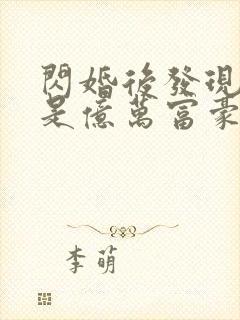 閃婚後發現
是億萬富豪
李萌